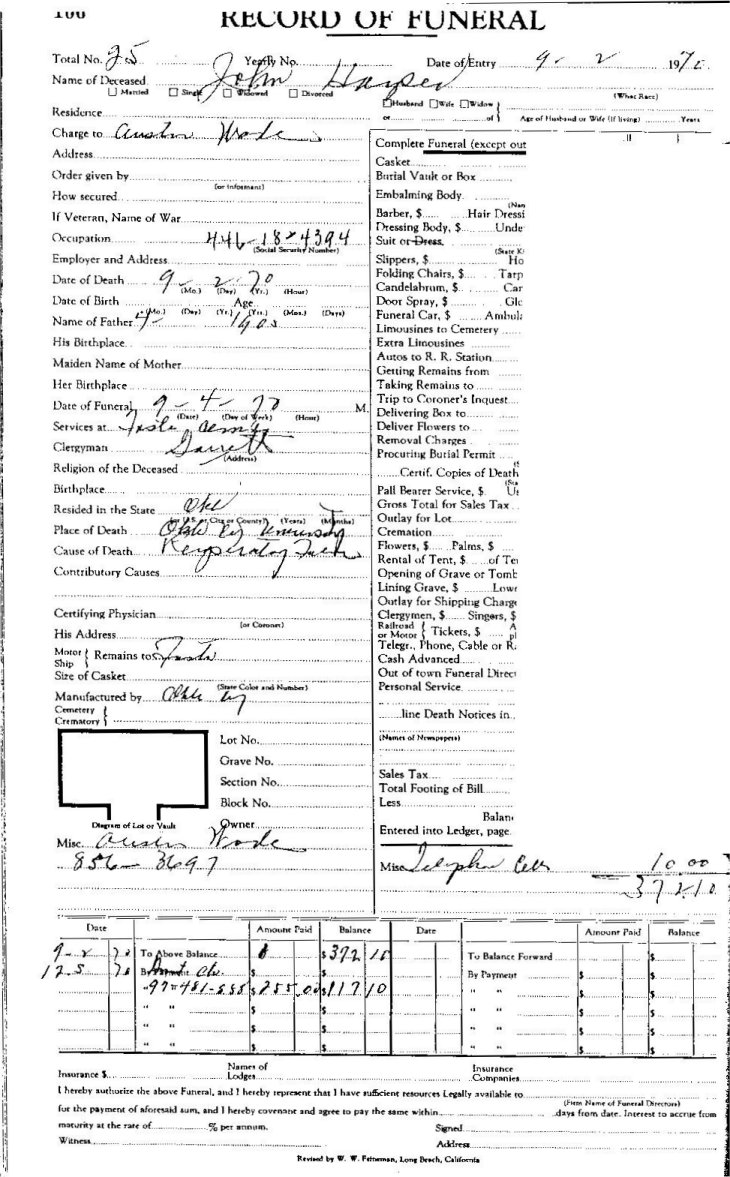 RECORD OF FUNERAL
Total No. 25 Yearly No. Date of Entry 9-2 1970
Name of Deceased John Harper
Married Single Widowed Divorced (What Race)
Husband Wife Widow
Residence or of Age of Husband or Wife (if living) Years
Charge to Austin Wade
Address
Order given by
(or Informant)
How secured
If Veteran, Name of War
Occupation 446-18-4394
(Social Security Number)
Employer and Address
Date of Death 9-2-70
(Mo.) (Day) (Yr.) (Hour)
Date of Birth Age
(Mo.) (Day) (Yr.) (Yrs.) (Mos.) (Days)
Name of Father
His Birthplace
Maiden Name of Mother
Her Birthplace
Date of Funeral 9-4-70 M.
(Date) (Day of Week) (Hour)
Services at
Clergyman Garrett
(Address)
Religion of the Deceased
Birthplace
Resided in the State Okl
(or U.S. or City or County) (Years) (Months)
Place of Death
Cause of Death
Contributory Causes
Certifying Physician
(or Coroner)
His Address
Motor Ship Remains to
Size of Casket
(State Color and Number)
Manufactured by
Cemetery
Crematory
Lot No.
Grave No.
Section No.
Block No.
Diagram of Lot or Vault Owner
Misc. Austin Wade
856-3697
Complete Funeral (except out
Casket
Burial Vault or Box
Embalming Body
Barber, $ Hair Dressi
Dressing Body, $ Unde
Suit or Dress
Slippers, $ Ho
Folding Chairs, $ Tarp
Candelabrum, $ Car
Door Spray, $ Glo
Funeral Car, $ Ambula
Limousines to Cemetery
Extra Limousines
Autos to R. R. Station
Getting Remains from
Taking Remains to
Trip to Coroner's Inquest
Delivering Box to
Deliver Flowers to
Removal Charges
Procuring Burial Permit
Certif. Copies of Death
Pall Bearer Service, $
Gross Total for Sales Tax
Outlay for Lot
Cremation
Flowers, $ Palms, $
Rental of Tent, $ of Te
Opening of Grave or Tomb
Lining Grave, $ Lowe
Outlay for Shipping Charge
Clergymen, $ Singers, $
Railroad or Motor Tickets, $
Telegr., Phone, Cable or R.
Cash Advanced
Out of town Funeral Direct
Personal Service
line Death Notices in
(Names of Newspapers)
Sales Tax
Total Footing of Bill
Less
Balan
Entered into Ledger, page
Misc. 10.00
372.10
Date Amount Paid Balance Date Amount Paid Balance
9-2 70 To Above Balance $372 10 To Balance Forward $
12 5 70 By $ $ By Payment $ $
$255.00 $117 10 " " $ $
" " $ $ " " $ $
" " $ $ " " $ $
" " $ $ " " $ $
Insurance $ Names of Lodges Insurance Companies
I hereby authorize the above Funeral, and I hereby represent that I have sufficient resources Legally available to
(Firm Name of Funeral Directors)
for the payment of aforesaid sum, and I hereby covenant and agree to pay the same within days from date. Interest to accrue from
maturity at the rate of % per annum. Signed
Witness Address
Revised by W. W. Feineman, Long Beach, California